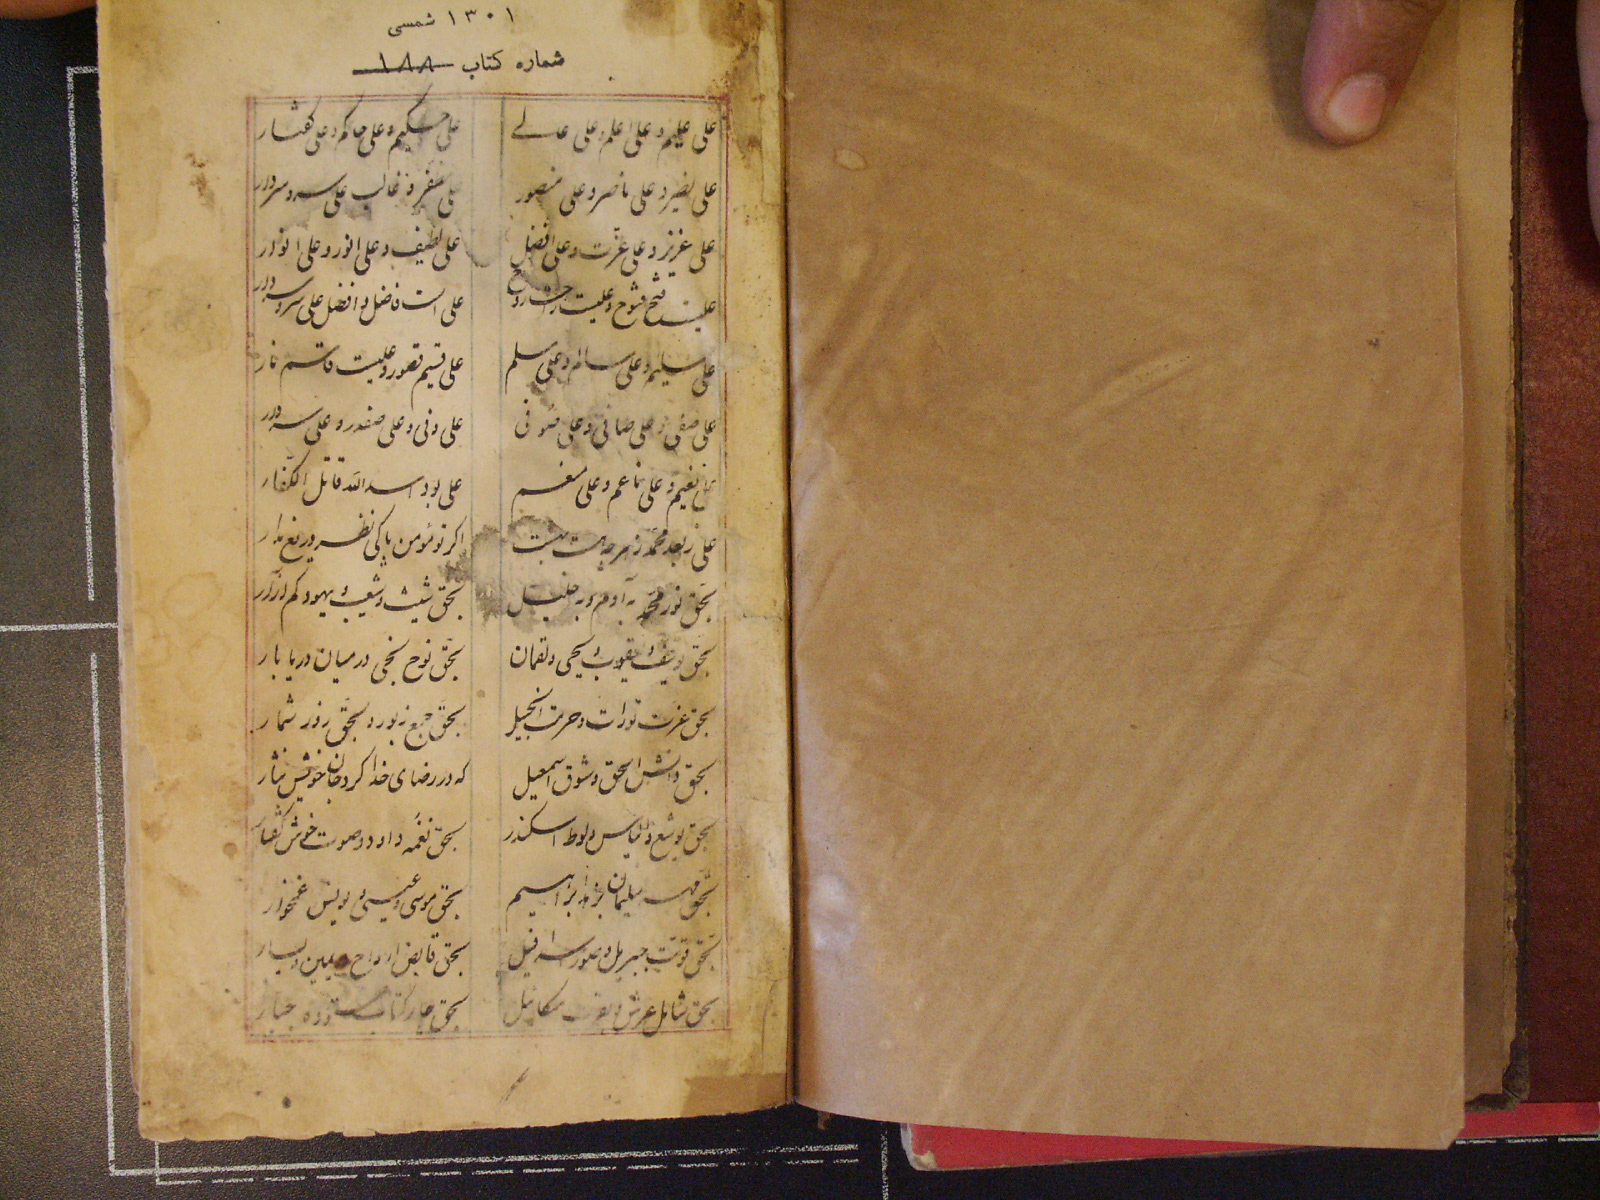 ۱۳۰۱ شمسی
شماره کتاب ۱۸۸
علی علیم و علی اعلم و علی عالی علی حکیم و علی حاکم و علی گفتار
علی نصیر و علی ناصر و علی منصور علی مظفر و غالب علی سر و سردار
علی عزیز و علی عزت و علی افضل علی لطیف و علی انور و علی انوار
علیست فتح فتوح و علیست علی است فاضل و افضل علی سر و سردار
علی سلیم و علی سالم و علی مسلم علی قسیم قصور و علیست قاسم نار
علی صفی و علی صافی و علی صوفی علی وفی و علی صفدر و علی سردار
علی نعیم و علی ناعم و علی منعم علی بود اسد الله قاتل الکفار
علی ز بعد محمد ز هر چه هست بهست اگر تو مؤمن پاکی نظر دریغ مدار
بحق نور محمد به آدم و به خلیل بحق شیث و شعیب و یهود کم آزار
بحق یوسف و یعقوب و یحیی و لقمان بحق نوح نجی در میان دریا بار
بحق عزت تورات و حرمت انجیل بحق جمیع زبور و بحق روز شمار
بحق دانش اسحق و شوق اسمعیل که در رضای خدا کرد جان خویش نثار
بحق یوشع و الیاس و لوط اسکندر بحق نغمه داود و صوت خوش گفتار
بحق مهر سلیمان ابراهیم بحق موسی و عیسی و یونس غمخوار
بحق قوت جبریل و صور اسرافیل بحق قابض ارواح یمین و یسار
بحق حامل عرش و میکائیل بحق چار کتاب ستوده جبار